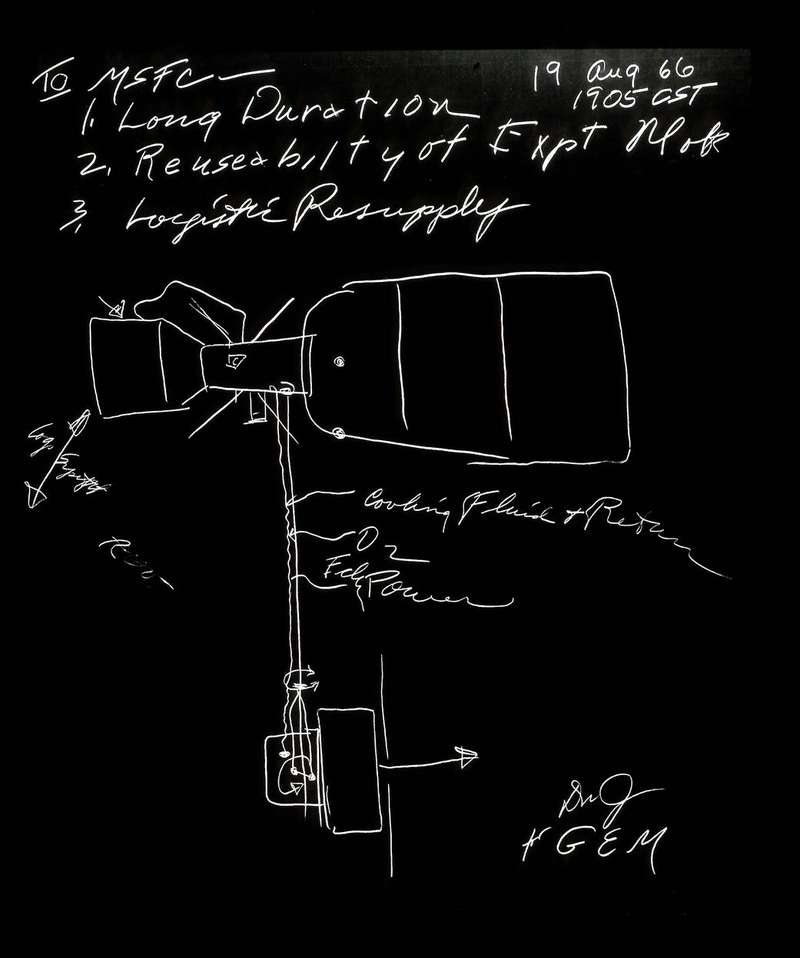 To MSFC —
19 Aug 66
1905 CST
1. Long Duration
2. Reuseabilty of Expt Mods
3. Logistic Resupply
C
Cooling Fluid & Return
O2
Power
GEM